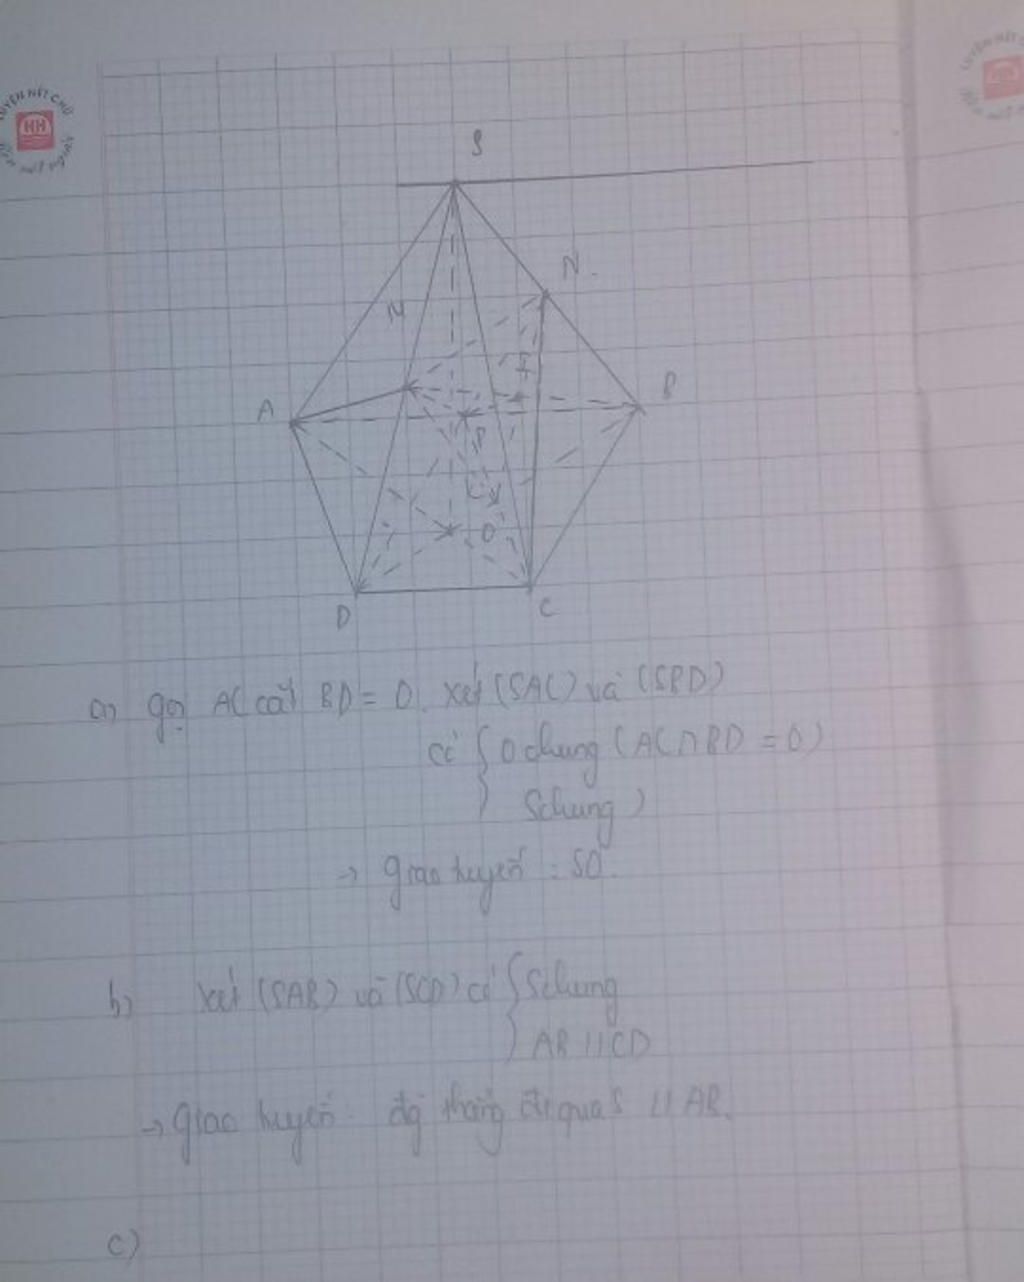 S
N.
M
I
A
B
P
O
D
C
a) gọi AC cắt BD = O. Xét (SAC) và (SBD)
có { O chung (AC∩BD = O)
S chung )
→ giao tuyến : SO.
b) Xét (SAB) và (SCD) có { S chung
AB // CD
→ Giao tuyến đg thẳng đi qua S // AB.
c)
LUYỆN NÉT CHỮ
HH
LUYỆN NÉT